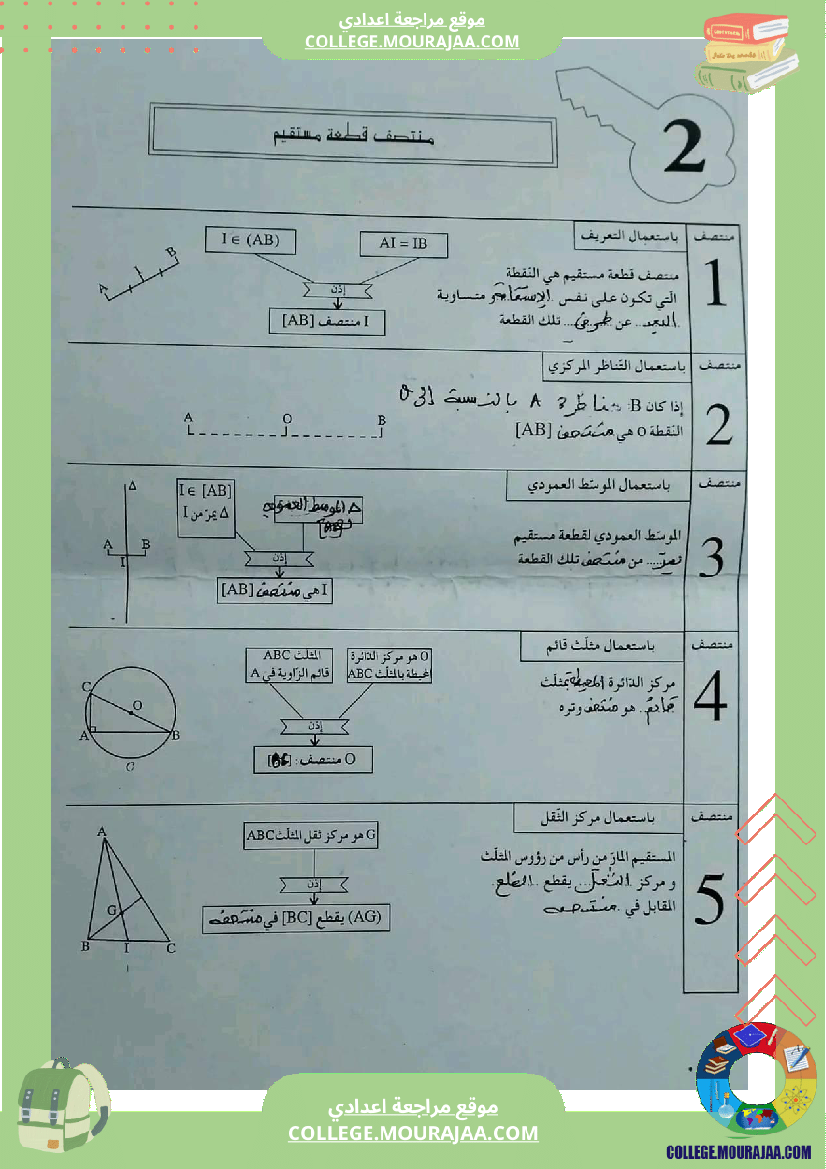 موقع مراجعة اعدادي
COLLEGE.MOURAJAA.COM
2
منتصف قطعة مستقيم
منتصف
1
باستعمال التعريف
منتصف قطعة مستقيم هي النقطة
التي تكون على نفس الإستقامة و متساوية
البعد عن طرفي تلك القطعة
I ∈ (AB)
AI = IB
إذن
I منتصف [AB]
A
B
منتصف
2
باستعمال التناظر المركزي
إذا كان B: مناظرة A بالنسبة إلى O
النقطة O هي منتصف [AB]
A O B
منتصف
3
باستعمال الموسّط العمودي
الموسّط العمودي لقطعة مستقيم
يمرّ من منتصف تلك القطعة
I ∈ [AB]
Δ يمرّ من I
Δ الموسط العمودي
[AB]
إذن
I هي منتصف [AB]
Δ
A B
I
منتصف
4
باستعمال مثلّث قائم
مركز الدّائرة المحيطة بمثلّث
قائم هو منتصف وتره
المثلّث ABC
قائم الزّاوية في A
O هو مركز الدّائرة
المحيطة بالمثلّث ABC
إذن
O منتصف :
C
O
A B
منتصف
5
باستعمال مركز الثّقل
المستقيم المارّ من رأس من رؤوس المثلّث
و مركز الثقل يقطع الضلع
المقابل في منتصفه
G هو مركز ثقل المثلّث ABC
إذن
(AG) يقطع [BC] في منتصفه
A
G
B I C
موقع مراجعة اعدادي
COLLEGE.MOURAJAA.COM
COLLEGE.MOURAJAA.COM